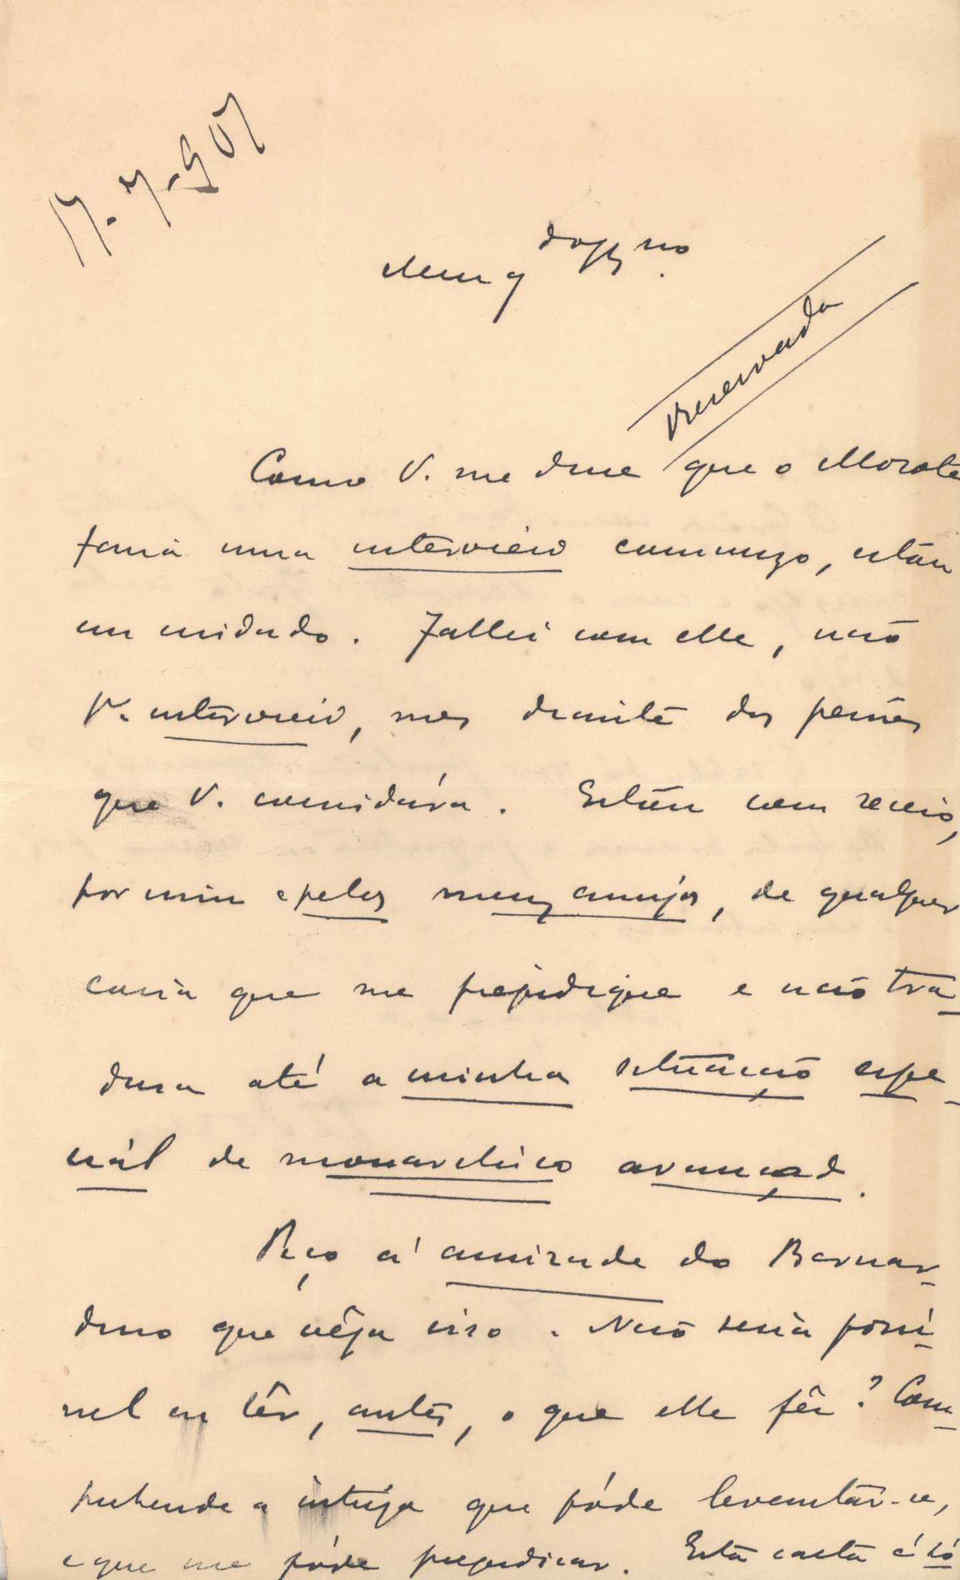 17-7-907
Meu qdo Amigo
Reservada
Como V. me disse que o Morate
faria uma interview commigo, estou
em cuidado. Fallei com elle, não
p.ª interview, mas diante das pessoas
que V. convidára. Estou com receio,
por mim e pelos meus amigos, de qualquer
cousa que me prejudique e não tra-
dusa até a minha situação espe-
cial de monarchico avançado.
Peço á amizade do Bernar-
dino que vêja isso. Não seria possi-
vel eu lêr, antes, o que elle fêz? Com-
prehende a intriga que póde levantar-se,
e que me póde prejudicar. Esta carta é só